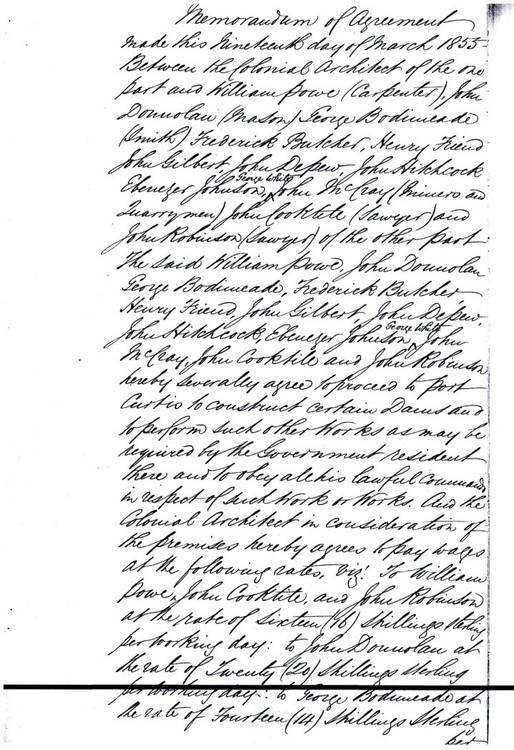 Memorandum of Agreement
made this Nineteenth day of March 1855
Between the Colonial Architect of the one
part and William Powe (Carpenter), John
Donnolan (Mason) George Bodimeade
(Smith) Frederick Butcher, Henry Friend
John Gilbert, John Depew, John Hitchcock
George White
Ebenezer Johnson, ^ John McCray (Miners and
Quarrymen) John Cooktile (Sawyer) and
John Robinson (Sawyer) of the other part.
The said William Powe, John Donnolan
George Bodimeade, Frederick Butcher
Henry Friend, John Gilbert, John Depew,
George White
John Hitchcock, Ebenezer Johnson, ^ John
McCray, John Cooktile and John Robinson
hereby severally agree to proceed to Port
Curtis to construct certain Dams and
to perform such other Works as may be
required by the Government resident
there and to obey all his lawful Commands
in respect of such Work or Works. And the
Colonial Architect in consideration of
the premises hereby agrees to pay wages
at the following rates, viz! To William
Powe, John Cooktile, and John Robinson
at the rate of sixteen (16) shillings sterling
per working day: to John Donnolan at
the rate of Twenty (20) shillings sterling
per working day: to George Bodimeade at
the rate of Fourteen (14) shillings sterling
per